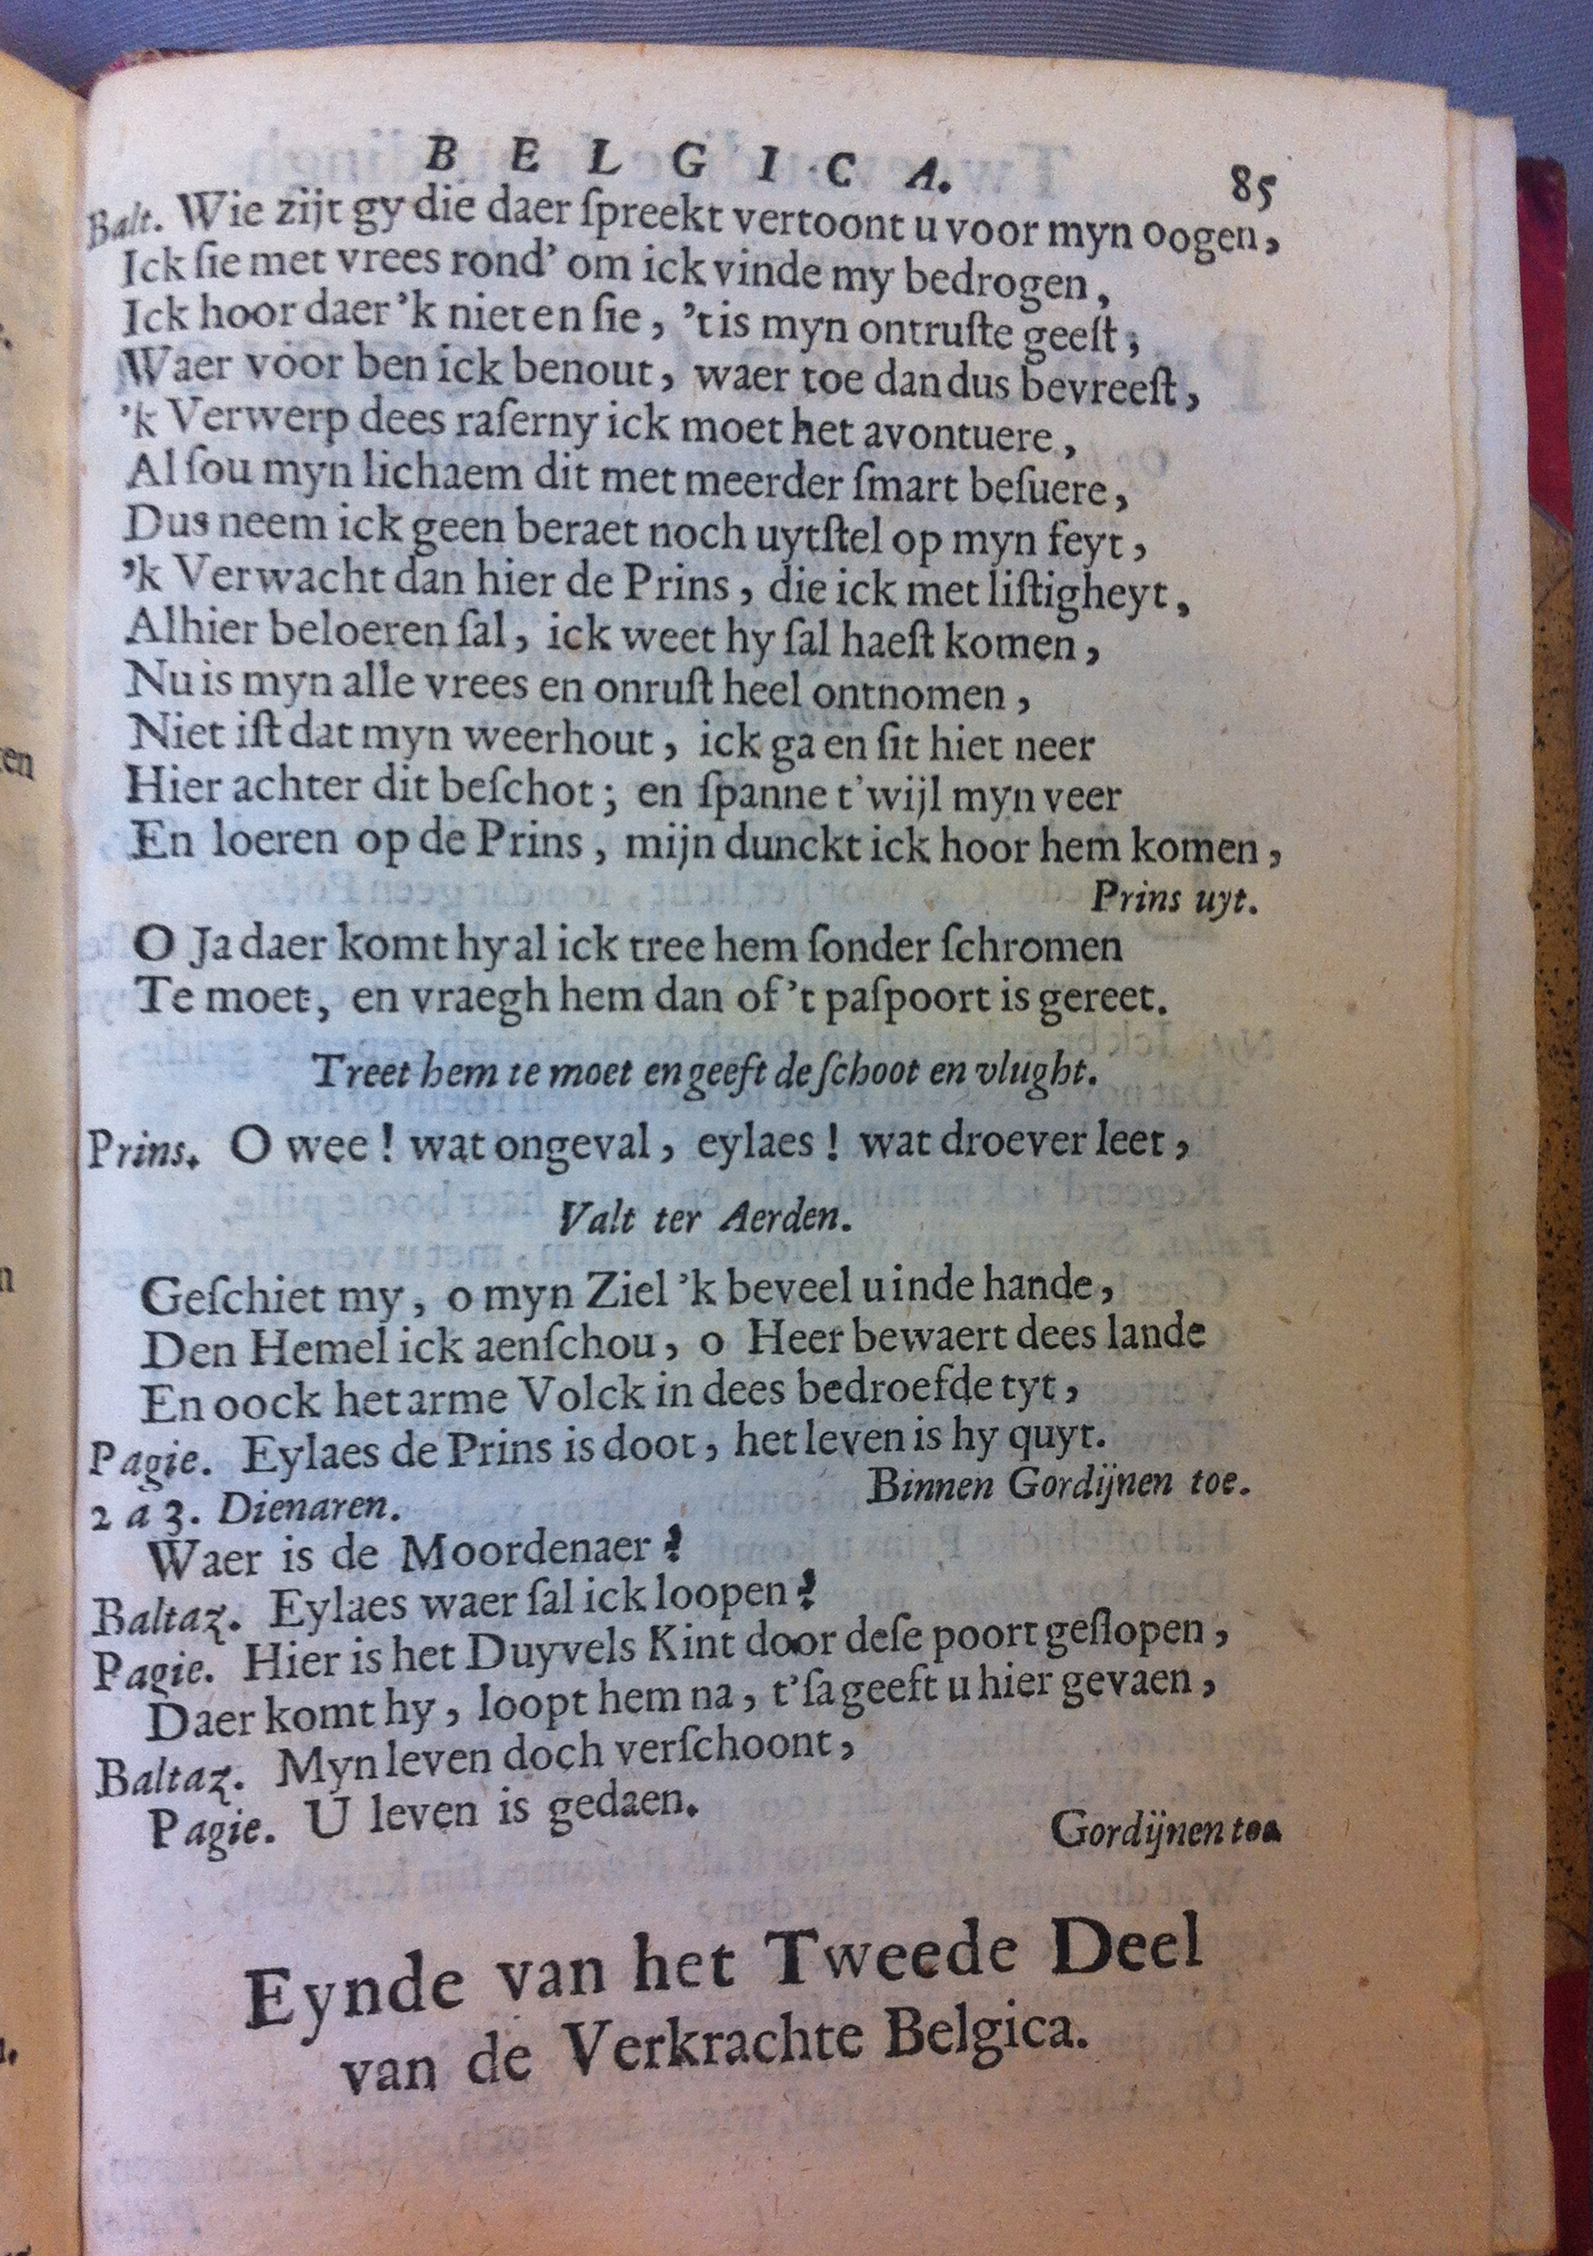 BELGICA. 85
Balt. Wie zijt gy die daer ſpreekt vertoont u voor myn oogen,
Ick ſie met vrees rond' om ick vinde my bedrogen,
Ick hoor daer 'k niet en ſie, 't is myn ontruſte geeſt,
Waer voor ben ick benout, waer toe dan dus bevreeſt,
'k Verwerp dees raſerny ick moet het avontuere,
Al ſou myn lichaem dit met meerder ſmart beſuere,
Dus neem ick geen beraet noch uytſtel op myn feyt,
'k Verwacht dan hier de Prins, die ick met liſtigheyt,
Alhier beloeren ſal, ick weet hy ſal haeſt komen,
Nu is myn alle vrees en onruſt heel ontnomen,
Niet iſt dat myn weerhout, ick ga en ſit hiet neer
Hier achter dit beſchot; en ſpanne t'wijl myn veer
En loeren op de Prins, mijn dunckt ick hoor hem komen,
Prins uyt.
O Ja daer komt hy al ick tree hem ſonder ſchromen
Te moet, en vraegh hem dan of 't paſpoort is gereet.
Treet hem te moet en geeft de ſchoot en vlught.
Prins. O wee! wat ongeval, eylaes! wat droever leet,
Valt ter Aerden.
Geſchiet my, o myn Ziel 'k beveel u inde hande,
Den Hemel ick aenſchou, o Heer bewaert dees lande
En oock het arme Volck in dees bedroefde tyt,
Pagie. Eylaes de Prins is doot, het leven is hy quyt.
Binnen Gordijnen toe.
2 a 3. Dienaren.
Waer is de Moordenaer?
Baltaz. Eylaes waer ſal ick loopen?
Pagie. Hier is het Duyvels Kint door deſe poort geſlopen,
Daer komt hy, loopt hem na, t'ſa geeft u hier gevaen,
Baltaz. Myn leven doch verſchoont,
Pagie. U leven is gedaen.
Gordijnen toe
Eynde van het Tweede Deel
van de Verkrachte Belgica.